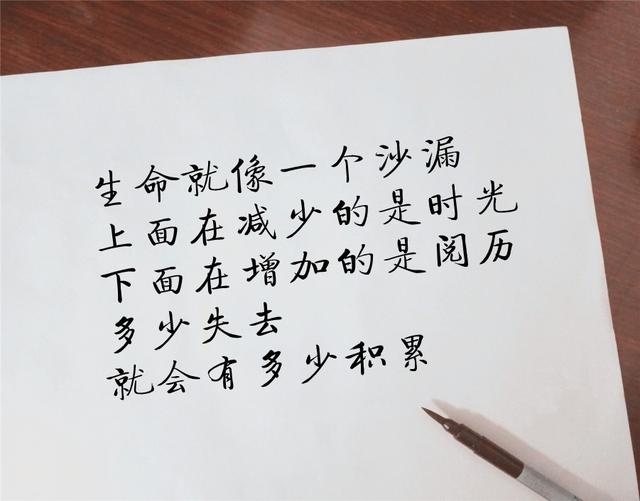 生命就像一个沙漏
上面在减少的是时光
下面在增加的是阅历
多少失去
就会有多少积累